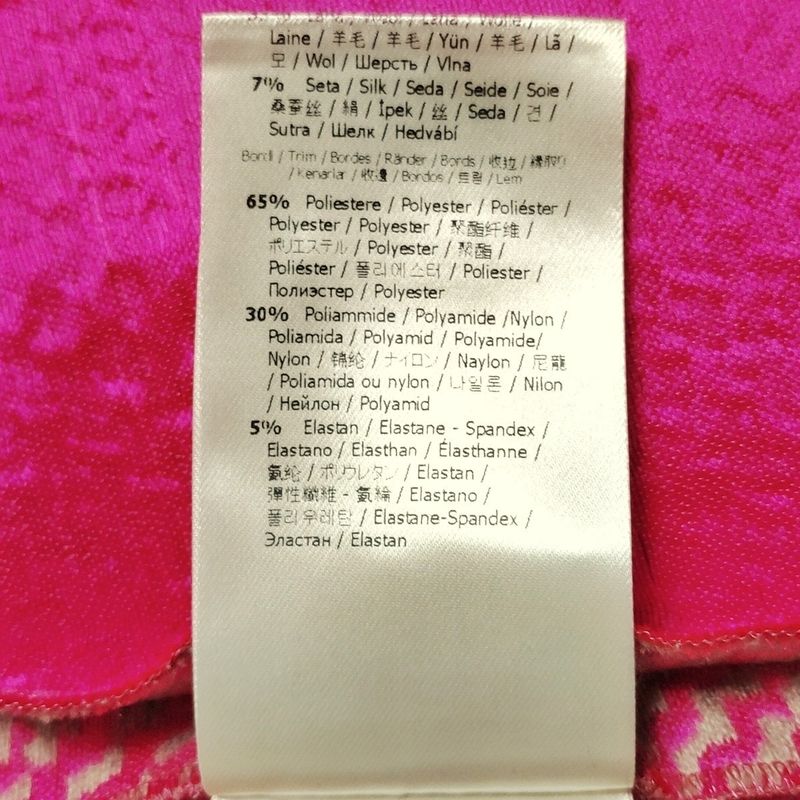 Laine / 羊毛 / 羊毛 / Yün / 羊毛 / Lã /
모 / Wol / Шерсть / Vlna
7% Seta / Silk / Seda / Seide / Soie /
桑蚕丝 / 絹 / İpek / 丝 / Seda / 견 /
Sutra / Шелк / Hedvábí
Bordi / Trim / Bordes / Ränder / Bords / 收边 / 縁取り
/ Kenarlar / 收邊 / Bordos / 트림 / Lem
65% Poliestere / Polyester / Poliéster /
Polyester / Polyester / 聚酯纤维 /
ポリエステル / Polyester / 聚酯 /
Poliéster / 폴리에스터 / Poliester /
Полиэстер / Polyester
30% Poliammide / Polyamide /Nylon /
Poliamida / Polyamid / Polyamide/
Nylon / 锦纶 / ナイロン / Naylon / 尼龍
/ Poliamida ou nylon / 나일론 / Nilon
/ Нейлон / Polyamid
5% Elastan / Elastane - Spandex /
Elastano / Elasthan / Élasthanne /
氨纶 / ポリウレタン / Elastan /
彈性纖維 - 氨綸 / Elastano /
폴리우레탄 / Elastane-Spandex /
Эластан / Elastan